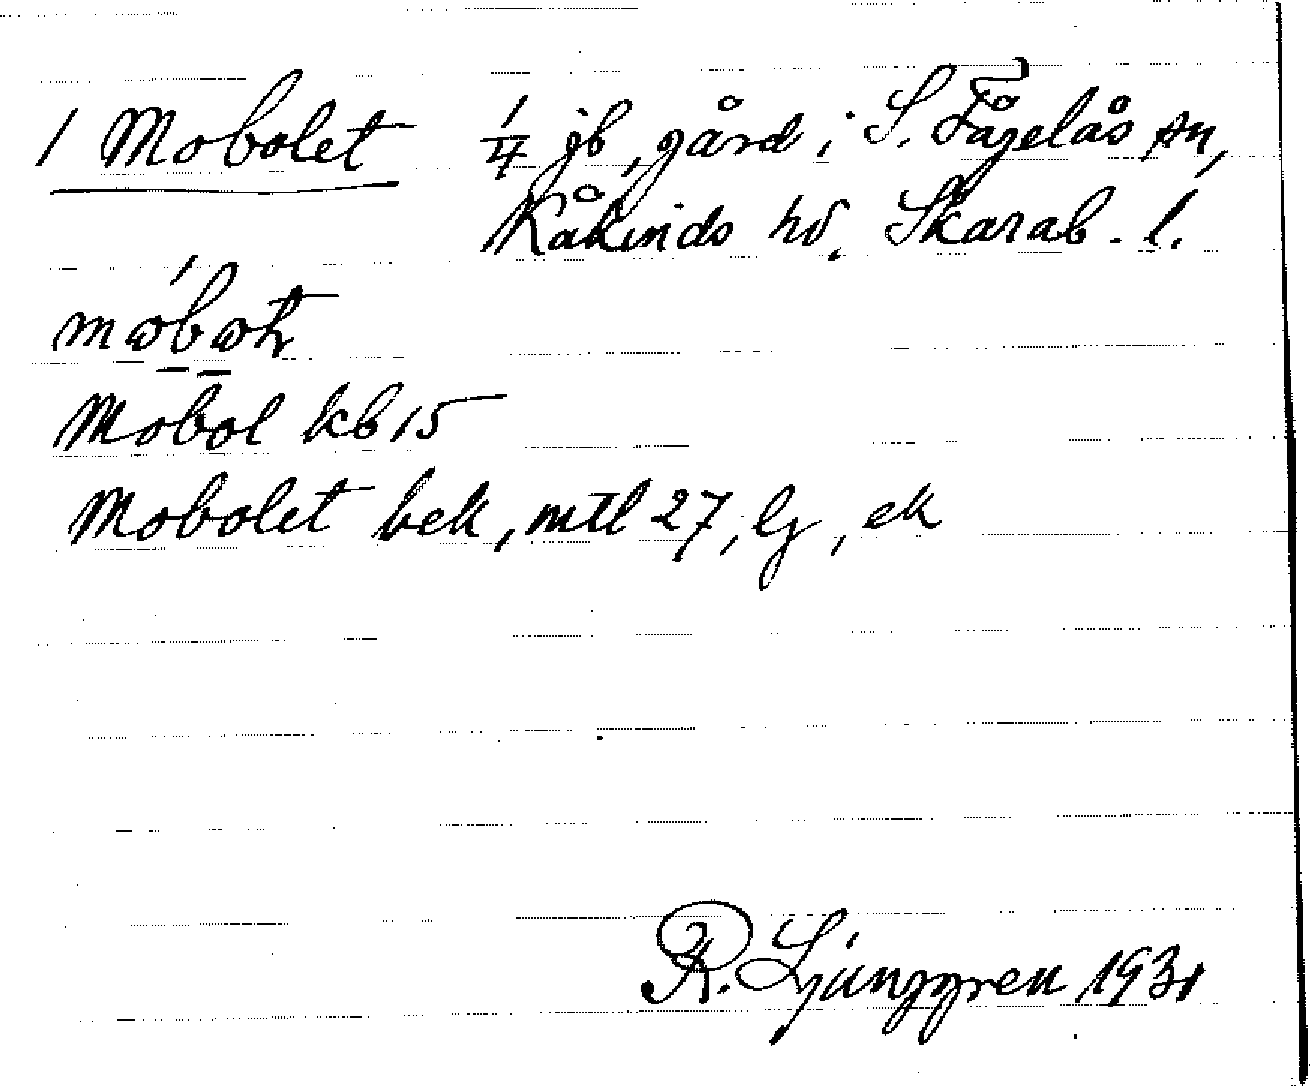 1 Mobolet 1/4 jb, gård i S. Fågelås sn,
Kåkinds hd. Skarab. l.
Mobol kb 15
Mobolet bek, mtl 27, lj, ek
R. Ljunggren 1931